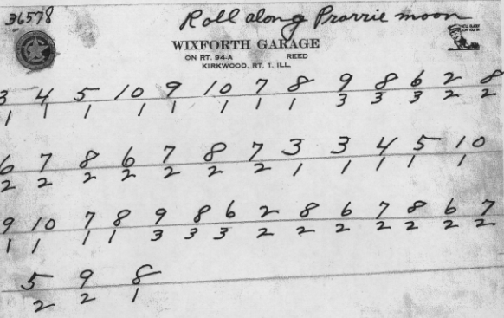 36578
Roll along Prarrie moon
WIXFORTH GARAGE
ON RT. 94-A REED
KIRKWOOD, RT. 1, ILL
3 4 5 10 9 10 7 8 9 8 6 2 8
1 1 1 1 1 1 1 3 3 3 2 2
6 7 8 6 7 8 7 3 3 4 5 10
2 2 2 2 2 2 2 1 1 1 1 1
9 10 7 8 9 8 6 2 8 6 7 8 6 7
1 1 1 1 3 3 3 2 2 2 2 2 2 2
5 9 8
2 2 1